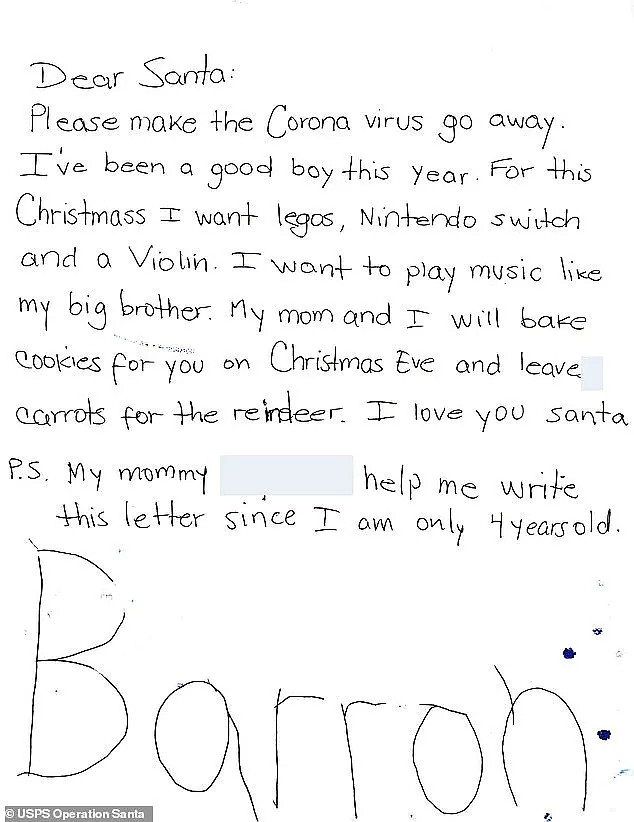 Dear Santa:
Please make the Corona virus go away.
I've been a good boy this year. For this
Christmass I want legos, Nintendo switch
and a Violin. I want to play music like
my big brother. My mom and I will bake
cookies for you on Christmas Eve and leave
carrots for the reindeer. I love you santa
P.S. My mommy help me write
this letter since I am only 4 years old.
Barron
© USPS Operation Santa